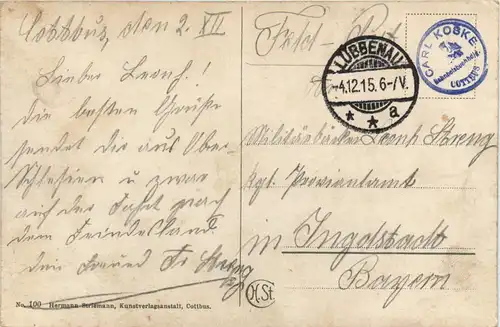 Cottbus, den 2. XII
Lieber Leonh!
die besten Grüße
sendet dir aus Ober-
Schlesien u zwar
auf der Fahrt nach
dem Feindesland
dein Freund Fr Streng
No. 100 Hermann Striemann, Kunstverlagsanstalt, Cottbus.
Feld-Post
LÜBBENAU
-4.12.15.6-7V.
* * a
CARL KOSKE
Bahnhofsbuchhdlg.
COTTBUS
Militärbäcker Leonh Streng
kgl. Proviantamt
in Ingolstadt
Bayern
H.St.